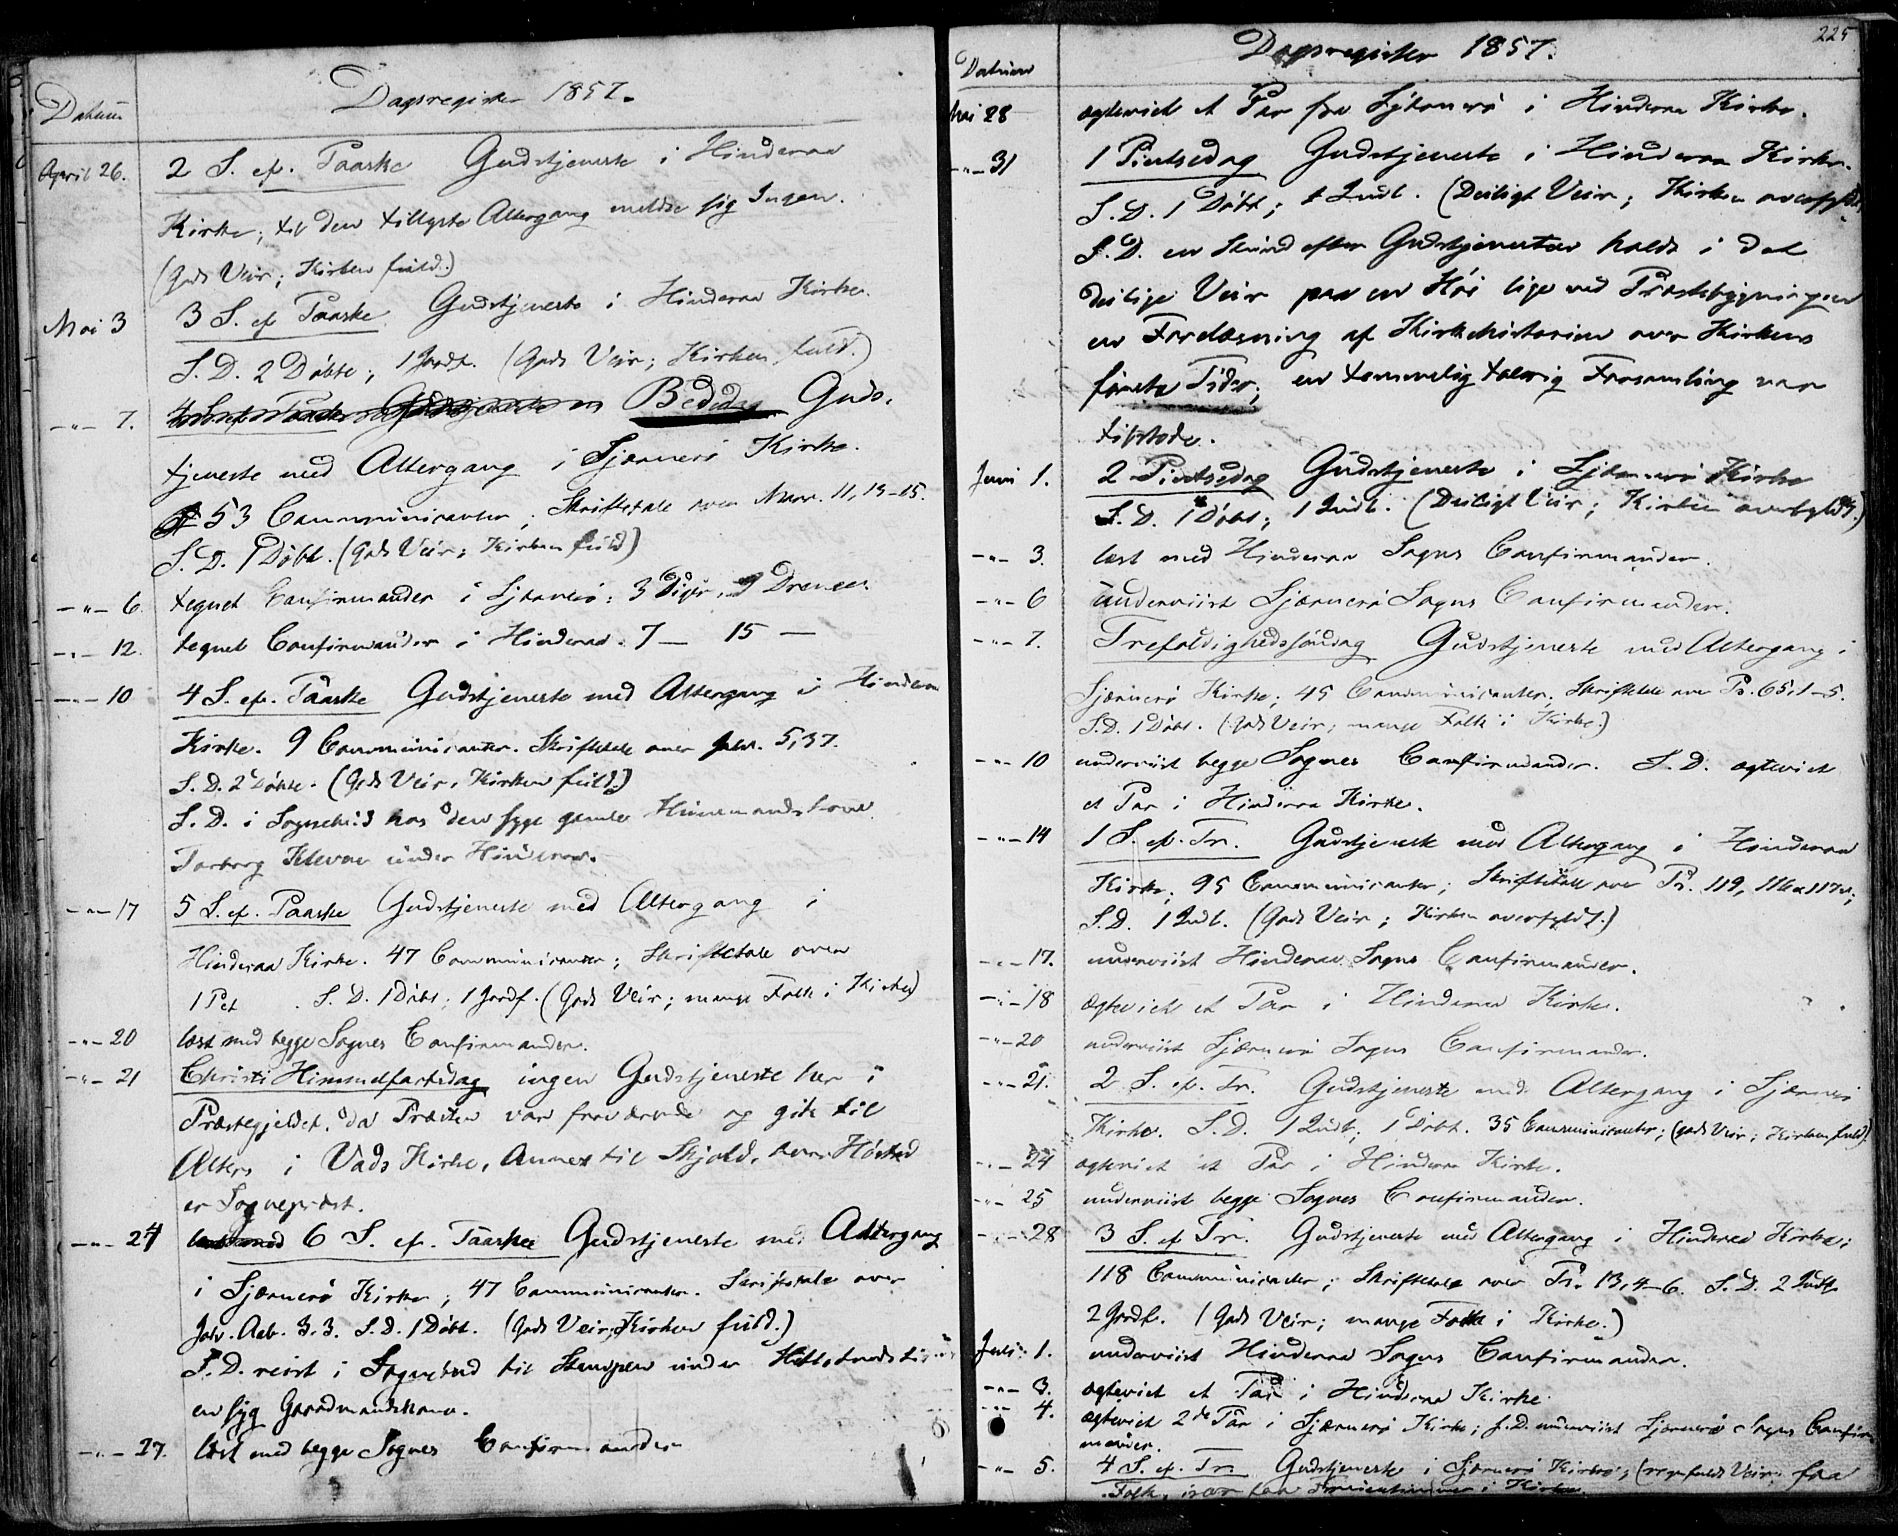 Dagsregister 1857.
Datum
April 26. 2 S. ef. Paaske Gudstjeneste i Hinderaa
Kirke; til den tillyste Altergang meldte sig Ingen.
(Godt Veir; Kirken fuld.)
Mai 3 3 S. ef Paaske. Gudstjeneste i Hinderaa Kirke.
S. D. 2 Døbte; 1 Jordf. (Godt Veir; Kirken fuld.)
-"- 7. Bededag Guds-
tjeneste med Altergang i Sjærnerø Kirke.
53 Communicanter; Skriftetale over Marc. 11, 15-15.
S. D. 1 Døbt. (Godt Veir; Kirken fuld)
-"- 6. tegnet Confirmander i Sjærnerø: 3 Piger, 9 Drenge.
-"- 12. tegnet Confirmander i Hinderaa: 7 — 15 —
-"- 10 4 S. ef. Paaske Gudstjeneste med Altergang i Hinderaa
Kirke. 9 Communicanter. Skriftetale over Joh. 5, 37.
S. D. 2 Døbte. (Godt Veir, Kirken fuld.)
S. D. i Sognebud hos den syge gamle Huusmandskone
Torborg Klevene under Hinderaa.
-"- 17 5 S. ef. Paaske Gudstjeneste med Altergang i
Hinderaa Kirke. 47 Communicanter; Skriftetale over
1 Pet . S. D. 1 Døbt; 1 Jordf. (Godt Veir; mange Folk i Kirke)
-"- 20 læst med begge Sognes Confirmander.
-"- 21 Christi Himmelfartsdag ingen Gudstjeneste her i
Præstegjeldet, da Præsten var fraværende og gik til
Alters i Vads Kirke, Annex til Skjold, hvor Høsted
er Sognepræst.
-"- 24 læst med 6 S. ef. Paaske Gudstjeneste med Altergang
i Sjærnerø Kirke; 47 Communicanter. Skriftetale over
Joh. Aab. 3.3. S. D. 1 Døbt. (Godt Veir; Kirken fuld.)
S. D. reist i Sognebud til under
en syg Gaardmandskone.
-"- 27. læst med begge Sognes Confirmander
225
Dagsregister 1857.
Datum
Mai 28 ægteviet et Par fra Sjærnerø i Hinderaa Kirke.
-"- 31 1 Pintsedag Gudstjeneste i Hinderaa Kirke.
S. D. 1 Døbt; 1 Indl. (Deiligt Veir; Kirken overfyldt.)
S. D. en Stund efter Gudstjenesten holdt i det
deilige Veir paa en Høi lige ved Præstebygningen
en Forelæsning af Kirkehistorien over Kirkens
første Tider; en temmelig talrig Forsamling var
tilstede.
Juni 1. 2 Pintsedag Gudstjeneste i Sjærnerø Kirke
S. D. 1 Døbt; 1 Indl. (Deiligt Veir; Kirken overfyldt.)
-"- 3. læst med Hinderaa Sogns Confirmander.
-"- 6 underviist Sjærnerø Sogns Confirmander.
-"- 7. Trefoldighedssøndag Gudstjeneste med Altergang i
Sjærnerø Kirke; 45 Communicanter; Skriftetale over Ps. 65, 1-5.
S. D. 1 Døbt. (Godt Veir; mange Folk i Kirke.)
-"- 10 underviist begge Sognes Confirmander. S. D. ægteviet
et Par i Hinderaa Kirke.
-"- 14 1 S. ef. Tr. Gudstjeneste med Altergang i Hinderaa
Kirke; 95 Communicanter; Skriftetale over Ps. 119, 116 & 117 v;
S. D. 1 Indl. (Godt Veir; Kirken overfyldt.)
-"- 17. underviist Hinderaa Sogns Confirmander.
-"- 18 Ægteviet et Par i Hinderaa Kirke.
-"- 20 underviist Sjærnerø Sogns Confirmander.
-"- 21. 2 S. ef. Tr. Gudstjeneste med Altergang i Sjærnerø
Kirke. S. D. 1 Indl; 1 Døbt. 35 Communicanter; (godt Veir; Kirken fuld).
-"- 24 ægteviet et Par i Hinderaa Kirke.
-"- 25 underviist begge Sognes Confirmander.
-"- 28 3 S. ef Tr. Gudstjeneste med Altergang i Hinderaa Kirke;
118 Communicanter; Skriftetale over Ps. 13, 4-6. S. D. 2 Indl.
2 Jordf. (Godt Veir; mange Folk i Kirke.)
Juli 1. underviist Hinderaa Sogns Confirmander.
-"- 3. ægteviet et Par i Hinderaa Kirke
-"- 4. ægteviet 2de Par i Sjærnerø Kirke; S. D. underviist Sjærnerø Sogns Confir-
mander.
-"- 5. 4 S. ef. Tr. Gudstjeneste i Sjærnerø Kirke; (regnfuldt Veir; faa
Folk, især faa i Kirken.